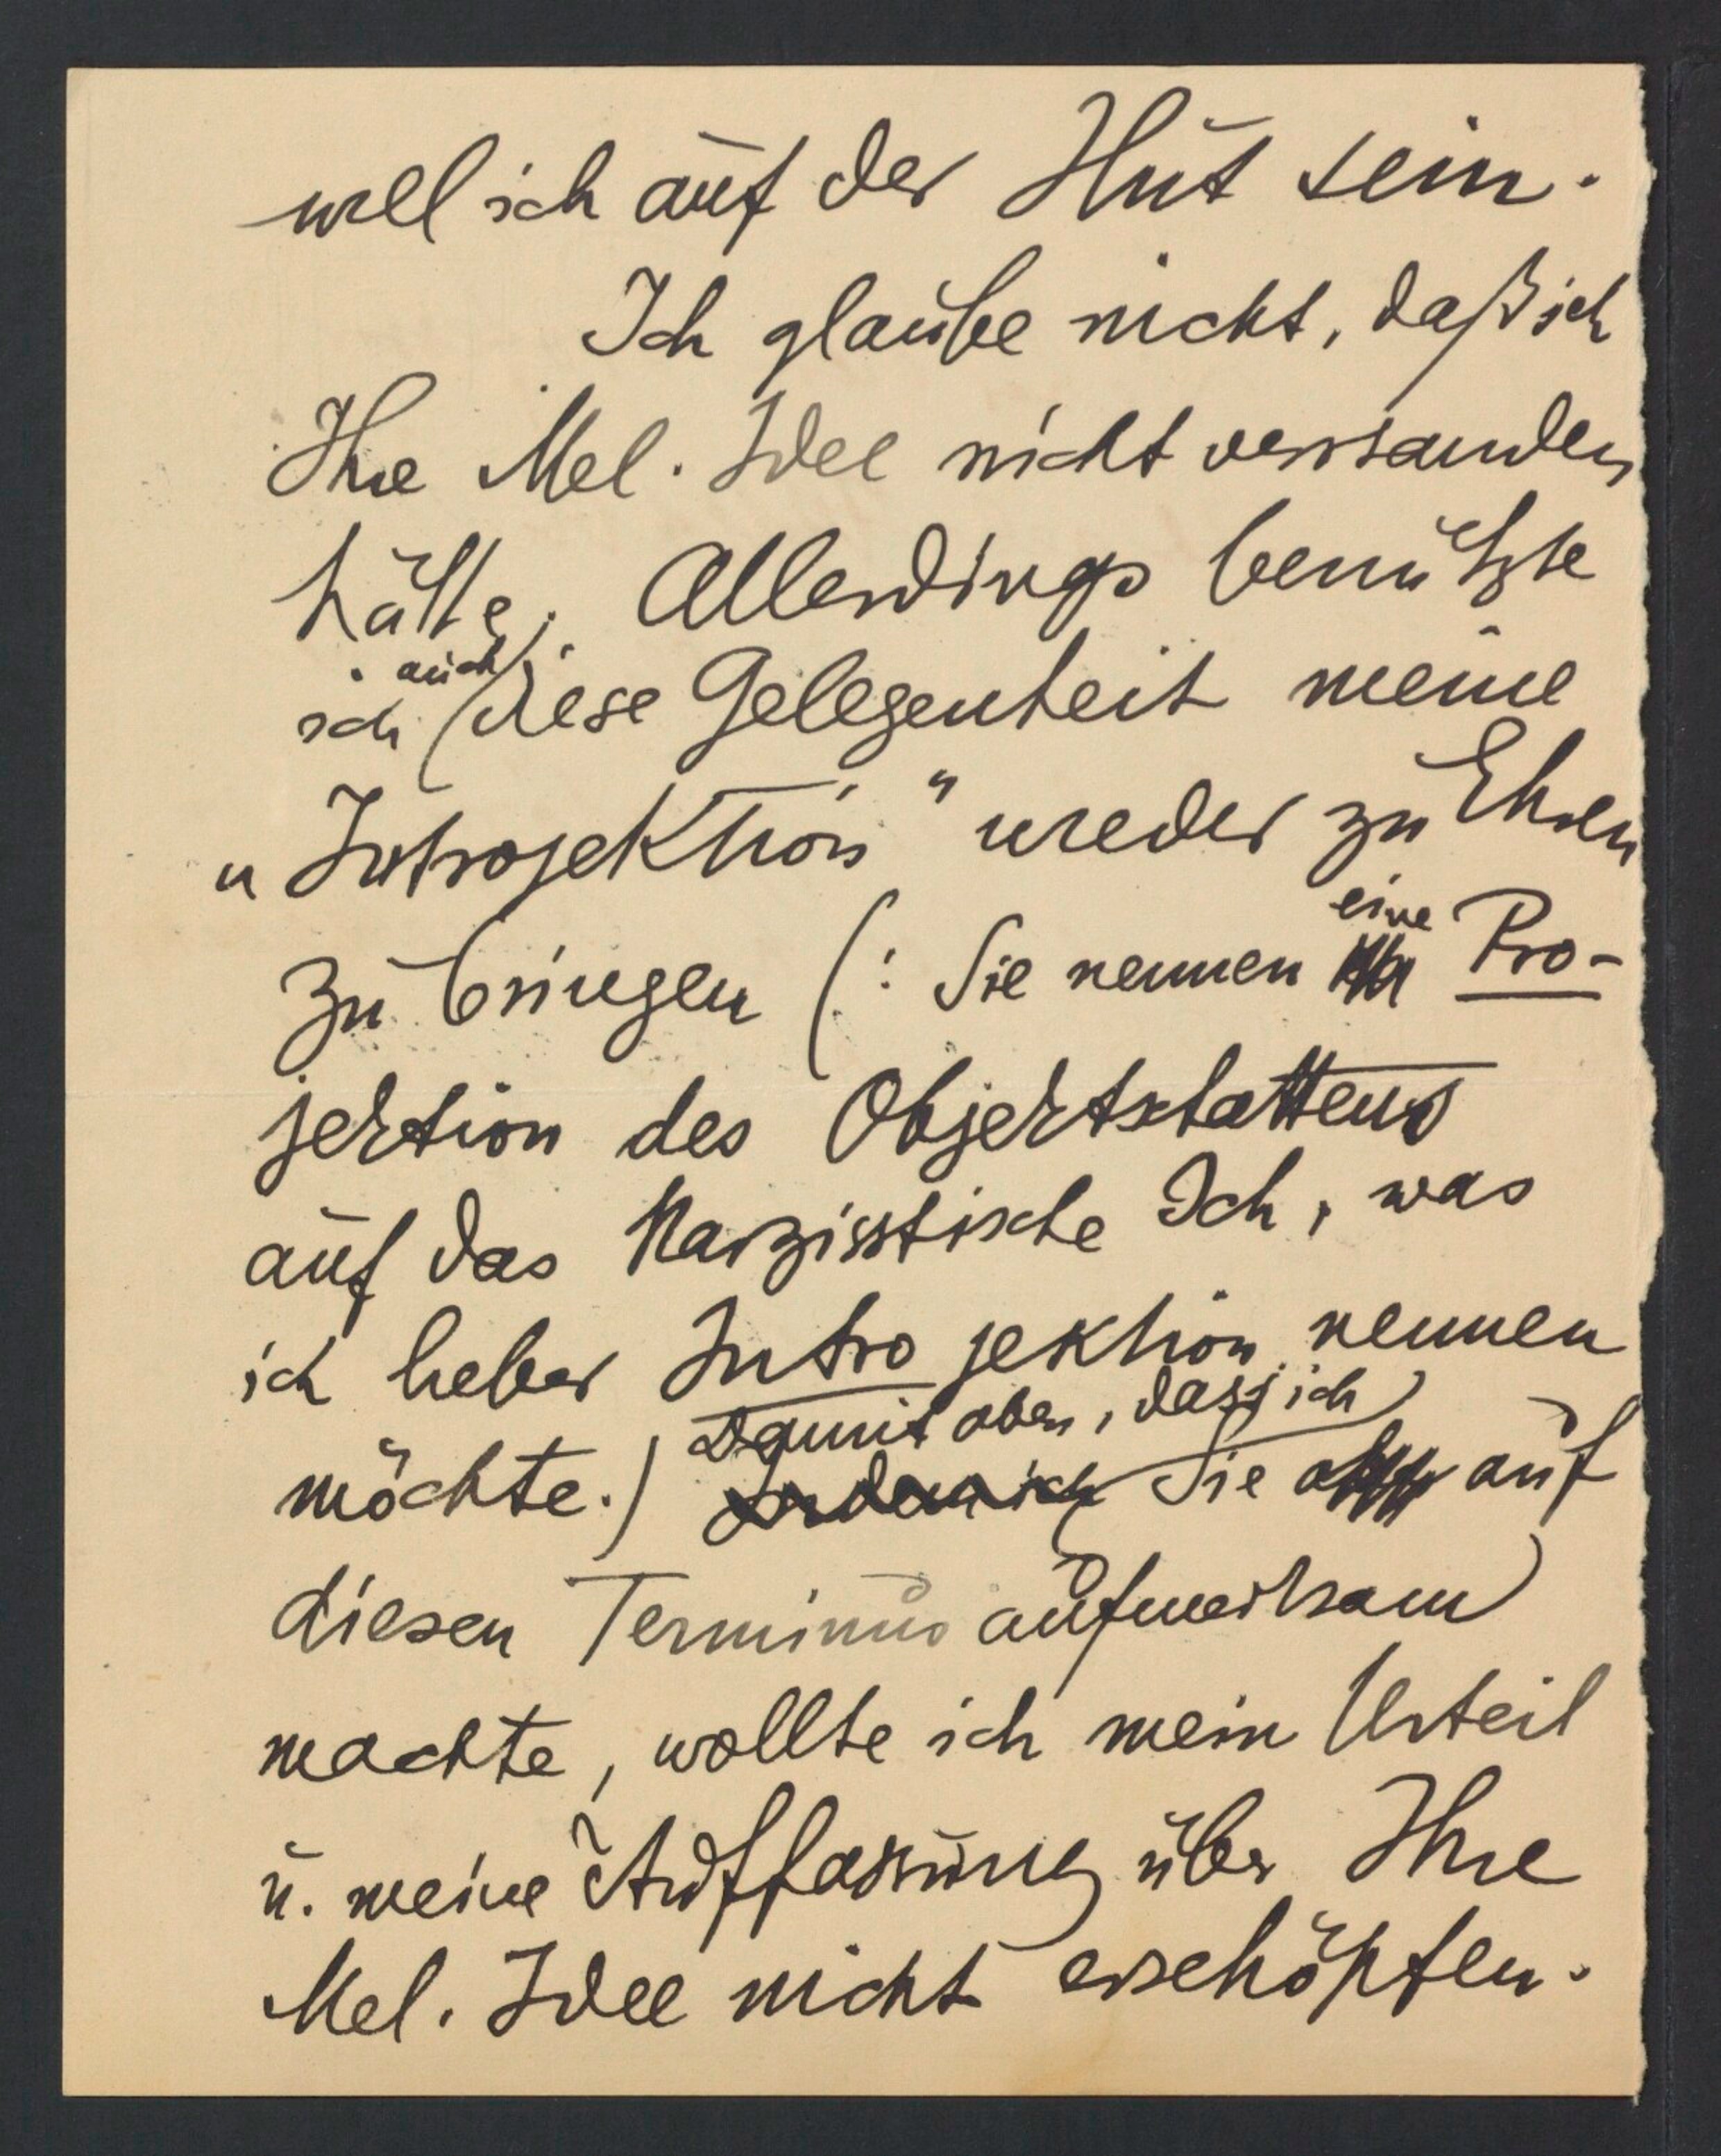 will ich auf der Hut sein.
Ich glaube nicht, daß ich
Ihre Mel. Idee nicht verstanden
hätte. Allerdings benützte
ich auch diese Gelegenheit meine
„Introjektion" wieder zu Ehren
zu bringen (: Sie nennen eine Pro-
jektion des Objektschattens
auf das Narzisstische Ich, was
ich lieber Introjektion nennen
möchte.) Damit aber, dass ich
Sie auf
diesen Terminus aufmerksam
machte, wollte ich mein Urteil
u. meine Auffassung über Ihre
Mel. Idee nicht erschöpfen.